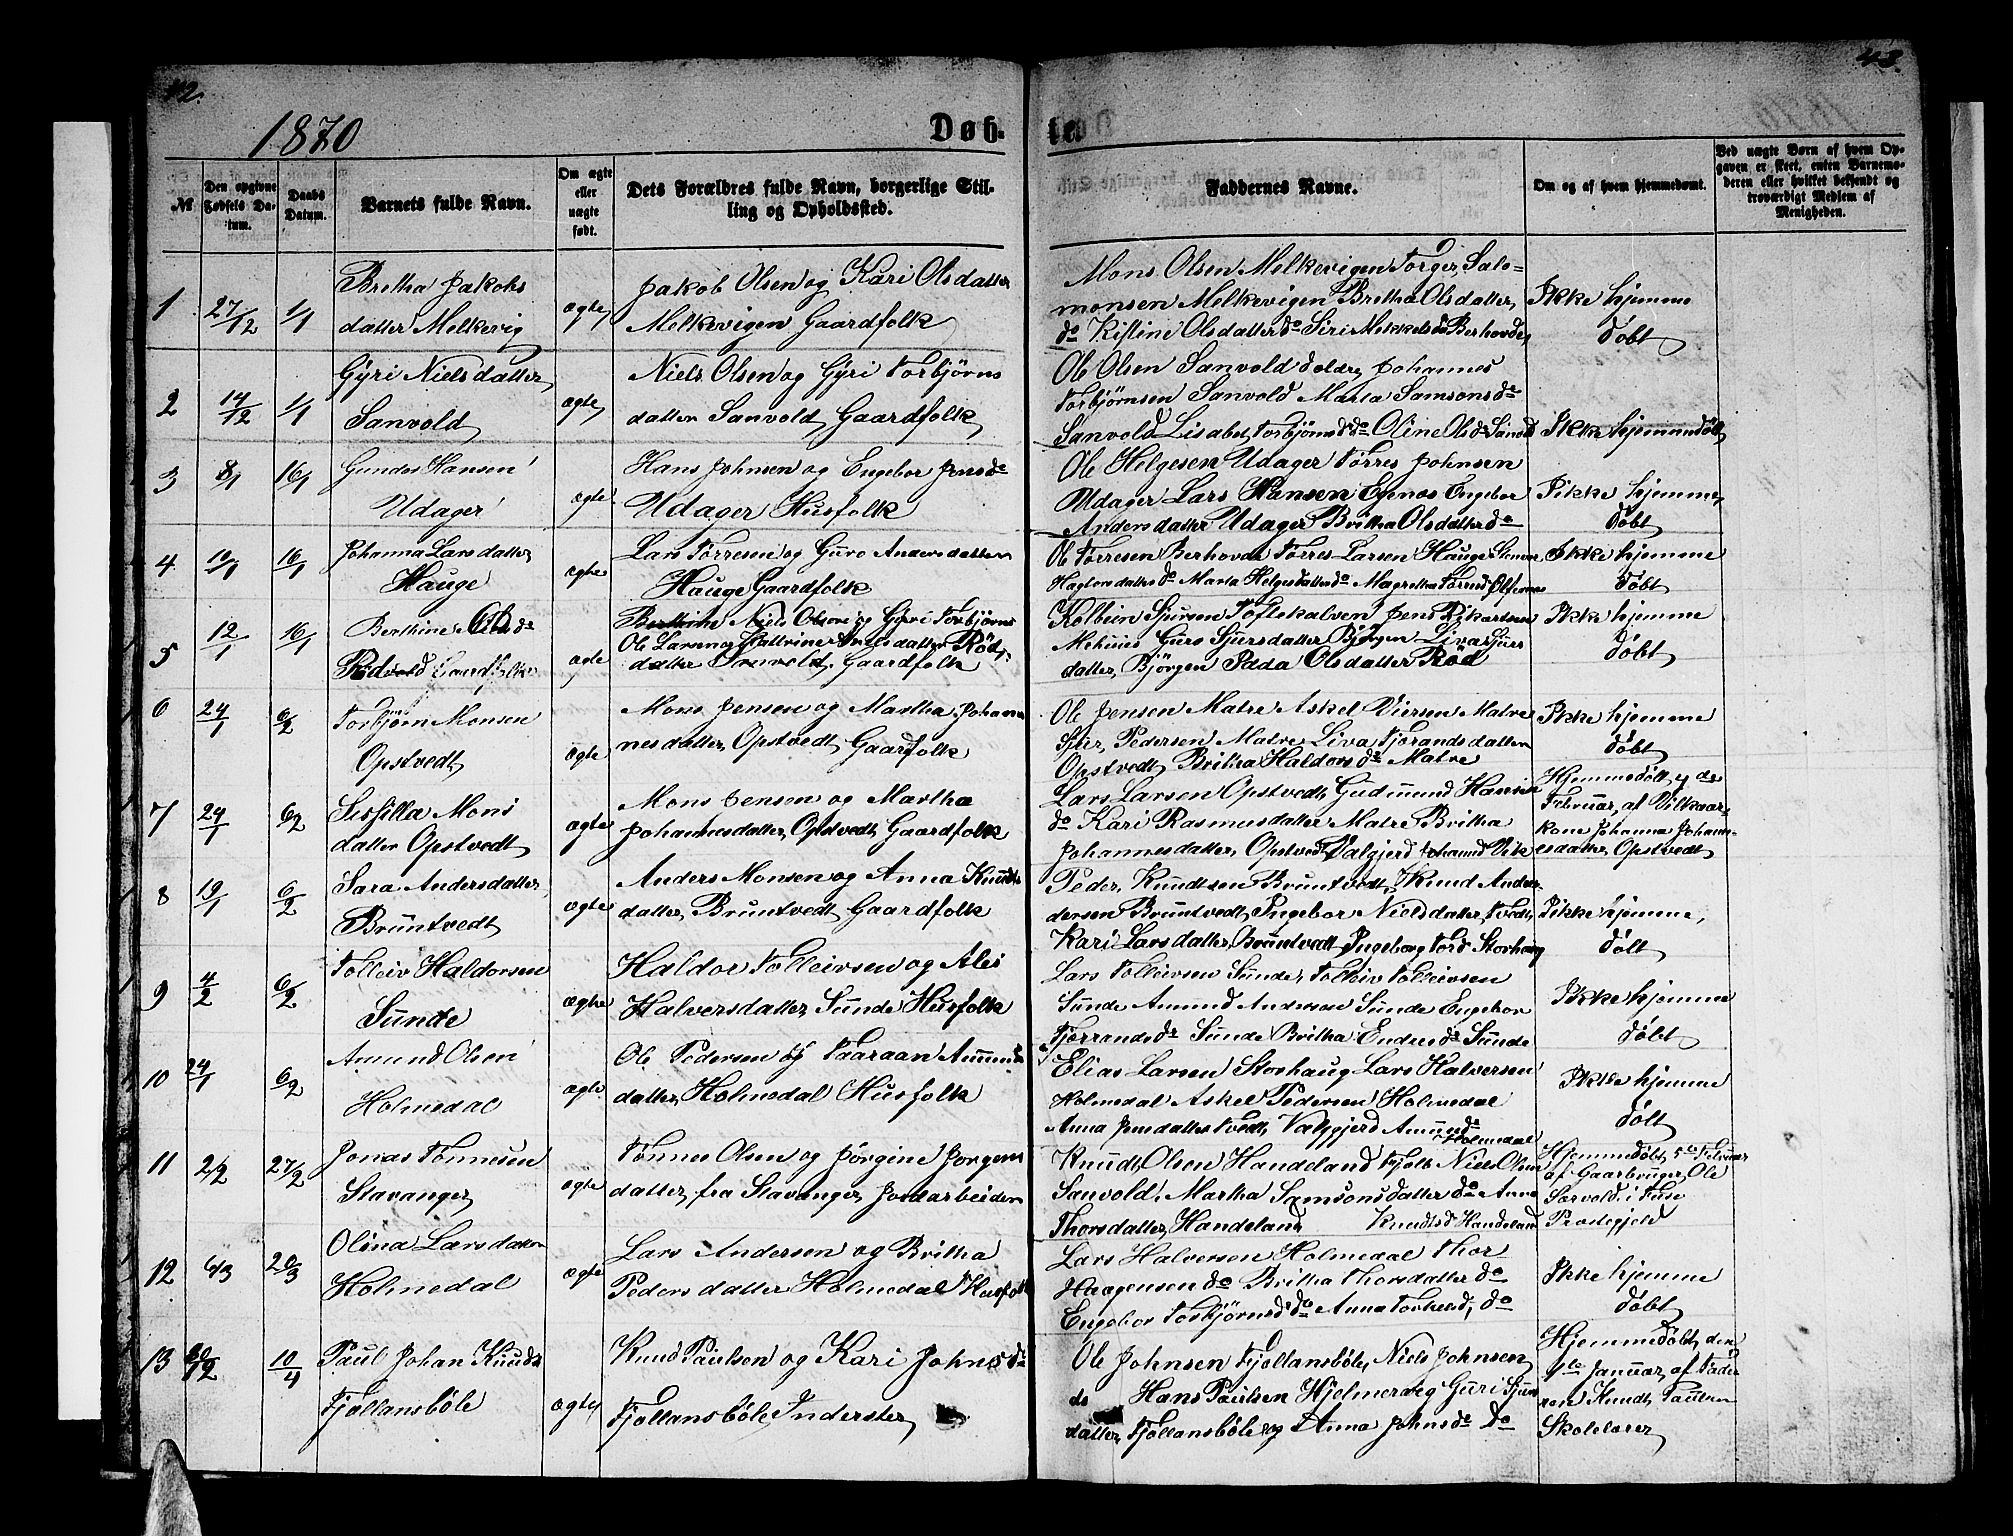 42.
43.
1870
Døb-
te.
№
Den opgivne Fødsels Datum.
Daabs Datum.
Barnets fulde Navn.
Om ægte eller uægte født.
Dets Forældres fulde Navn, borgerlige Stilling og Opholdssted.
Faddernes Navne.
Om og af hvem hjemmedøbt.
Ved uægte Børn af hvem Opgaven er skeet, enten Barnemoderen eller hvilket bekjendt og troværdigt Medlem af Menigheden.
1 27/12 1/1
Britha Jakobs
datter Melkevig
ægte
Jakob Olsen og Kari Olsdatter
Melkevigen Gaardfolk
Mons Olsen Melkevigen Torger Salo=
monsen Melkevigen Britha Olsdatter
do Kistine Olsdatter do Siri Mikkelsd Berhovde
Ikke hjemme
døbt
2 14/12 1/1
Gyri Nielsdatter
Sanvold
ægte
Niels Olsen og Gyri Torbjørns
datter Sanvold Gaardfolk
Ole Olsen Sanvold ældre Johannes
Torbjørnsen Sanvold Marta Samsonsdr
Sanvold Lisabet Torbjørnsd do Oline Olsdr Sanvold
Ikke hjemmedøbt
3 8/1 16/1
Hansen
Udager
ægte
Hans Johnsen og Engebor Jensdr
Udager Husfolk
Ole Helgesen Udager Tørres Johnsen
Udager Lars Hansen Engebor
Andersdatter Udager Britha Olsdatter do
Ikke hjemme
døbt
4 10/1 16/1
Johanna Larsdatter
Hauge
ægte
Lars Tørresen og Guro Andersdatter
Hauge Gaardfolk
Ole Tørresen Berhovde Tørres Larsen Hauge
datter do Marta Helgesdatter do Magretha
Ikke hjemme
døbt
5 12/1 16/1
Berthine Olsdr
Rød
ægte
Niels Olsen og Gyri Torbjørns
Ole Larsen og Cathrine Nielsdatter Rød
datter Sanvold Gaardfolk
Kolbein Sjursen Toftekalven Jens Rikartsen
Guro Sjursdatter Bjørgen Liva Sjurs
datter Bjørgen Olsdatter Rød
Ikke hjemme
døbt
6 24/1 6/2
Torbjørn Monsen
Opstvedt
ægte
Mons Jensen og Martha Johan
nesdatter Opstvedt Gaardfolk
Ole Jensen Matre Askel Matre
Sjur Pedersen Matre Liva Fjørandsdatter
Opstvedt Britha Haldorsdr Matre
Ikke hjemme
døbt
7 24/1 6/2
Sissilla Mons
datter Opstvedt
ægte
Mons Jensen og Martha
Johannesdatter Opstvedt Gaardfolk
Lars Larsen Opstvedt Gudmund Hansen
do Kari Rasmusdatter Matre Britha
Johannesdatter Opstvedt Valgjerd Vik
Hjemmedøbt 4de
Februar af
kone Johanna Johann-
esdatter Opstvedt
8 19/1 6/2
Sara Andersdatter
Bruntvedt
ægte
Anders Monsen og Anna Knudts
datter Bruntvedt Gaardfolk
Peder Knudtsen Bruntvedt Knud An-
dersen Bruntvedt Ingebor Nielsdatter Tvedt
Kari Larsdatter Bruntvedt Ingeborg Storhoug
Ikke hjemme
døbt
9 4/2 6/2
Tolleiv Haldorsen
Sunde
ægte
Haldor Tolleivsen og Ales
Halversdatter Sunde Husfolk
Lars Tolleivsen Sunde Tolleiv Tolleivsen
Sunde Amund Andersen Sunde Engebor
Fjørrandsdr Sunde Britha Endresdr Sunde
Ikke hjemme
døbt
10 24/1 6/2
Amund Olsen
Holmedal
ægte
Ole Pedersen og Taaraan Amunds
datter Holmedal Husfolk
Elias Larsen Storhaug Lars Halversen
Holmedal Askel Pedersen Holmedal
Anna Jensdatter Tvedt Valgjerd Amundsdr
Holmedal
Ikke hjemme
døbt
11 2/2 27/2
Jonas Tønnesen
Stavanger
ægte
Tønnes Olsen og Jørgine Jørgens
datter fra Stavanger Jordarbeider
Knudt Olsen Handeland Niels Olsen
Sanvold Martha Samsonsdatter do Anne
Thorsdatter Handeland Knudtsd Handeland
Hjemmedøbt 5te Februar
af Gaardbruger Ole
i Fuse
Prestegjeld
12 6/3 20/3
Olina Larsdatter
Holmedal
ægte
Lars Andersen og Britha
Pedersdatter Holmedal Husfolk
Lars Halversen Holmedal Thor
Haagensen do Britha Thorsdatter do
Engebor Torbjørnsd do Anna do
Ikke hjemme
døbt
13 30/12 10/4
Paul Johan Knuds
Fjellansbøle
ægte
Knud Paulsen og Kari Johnsdr
Fjellansbøle Inderster
Ole Johnsen Fjellansbøle Niels Johnsen
do Hans Paulsen Hjelmervig Guri Sjurs
datter Fjellansbøle og Anna Johnsdr do
Hjemmedøbt den
1te Januar af Fade
ren Knudt Paulsen
Skolelærer